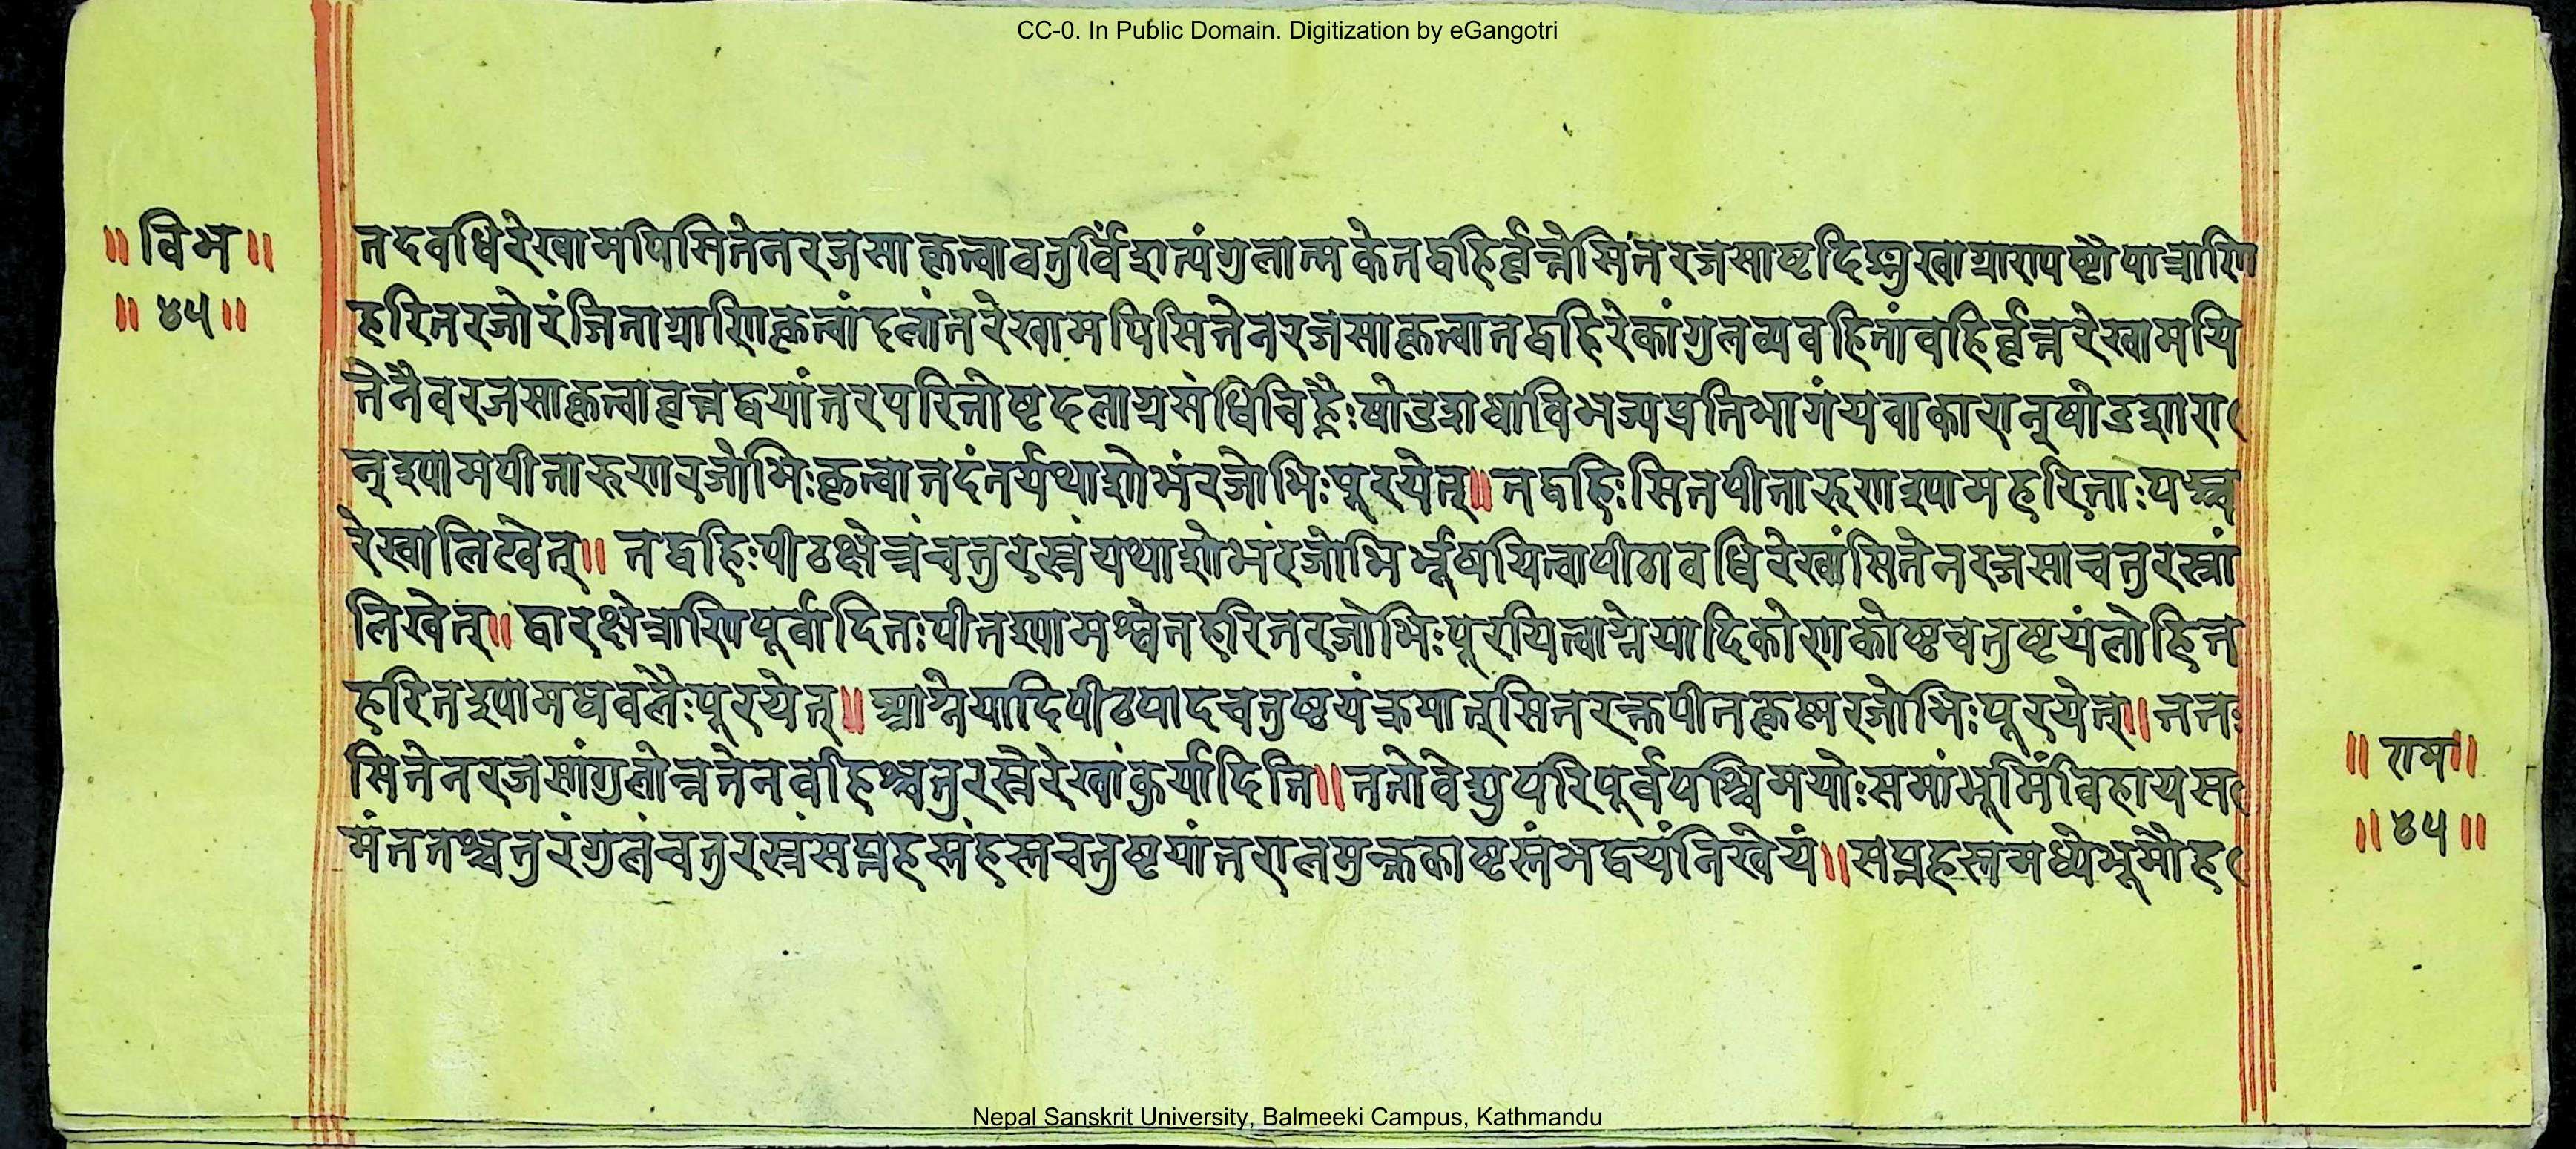 CC-0. In Public Domain. Digitization by eGangotri
॥ विभ ॥
॥ ४५ ॥
तदवधिरेखामपिसितेनरजसाकृत्वाचतुर्विंशत्यंगुलात्मकेतद्वहिर्वृत्तेसितरजसाष्टदि
हरितरजोरंजिताग्राणिकृत्वांदलांतरेखामपिसितेनरजसाकृत्वातद्वहिरेकांगुलव्यवहितांवहिर्वृत्तरेखामपि
तेनैवरजसाकृत्वावृत्तद्वयांतरपरितोष्टदलाग्रसंधिचिह्नैःषोडशधाविभज्यप्रतिभागंयवाकारान्षोडशारा
न्श्यामपीतारुणरजोभिःकृत्वातदंतर्यथाशोभंरजोभिःपूरयेत्॥तद्वहिःसितपीतारुणश्यामहरिताःपञ्च
रेखालिखेत्॥ तद्वहिःपीठक्षेत्रंचतुरस्रंयथाशोभंरजोभिर्भूषयित्वापीठावधिरेखांसितेनरजसाचतुरस्रां
लिखेत्॥द्वारक्षेत्राणिपूर्वादितःपीतश्यामश्वेतहरितरजोभिःपूरयित्वाग्नेयादिकोणकोष्ठचतुष्टयंलोहित
हरितश्यामधवलैःपूरयेत्॥आग्नेयादिपीठपादचतुष्टयंक्रमात्सितरक्तपीतकृष्णरजोभिःपूरयेत्॥ततः
सितेनरजसांगुलोन्नतेनवहिश्चतुरस्रेरेखांकुर्यादिति॥ततोवेद्युपरिपूर्वपश्चिमयोःसमांभूमिंविहायस
मंततश्चतुरंगुलंचतुरस्रंसप्तहस्तंहस्तचतुष्टयांतरालमुक्तकाष्टस्तंभद्वयंनिखेयं॥सप्तहस्तमध्येभूमौह
॥ राम ॥
॥ ४५ ॥
Nepal Sanskrit University, Balmeeki Campus, Kathmandu